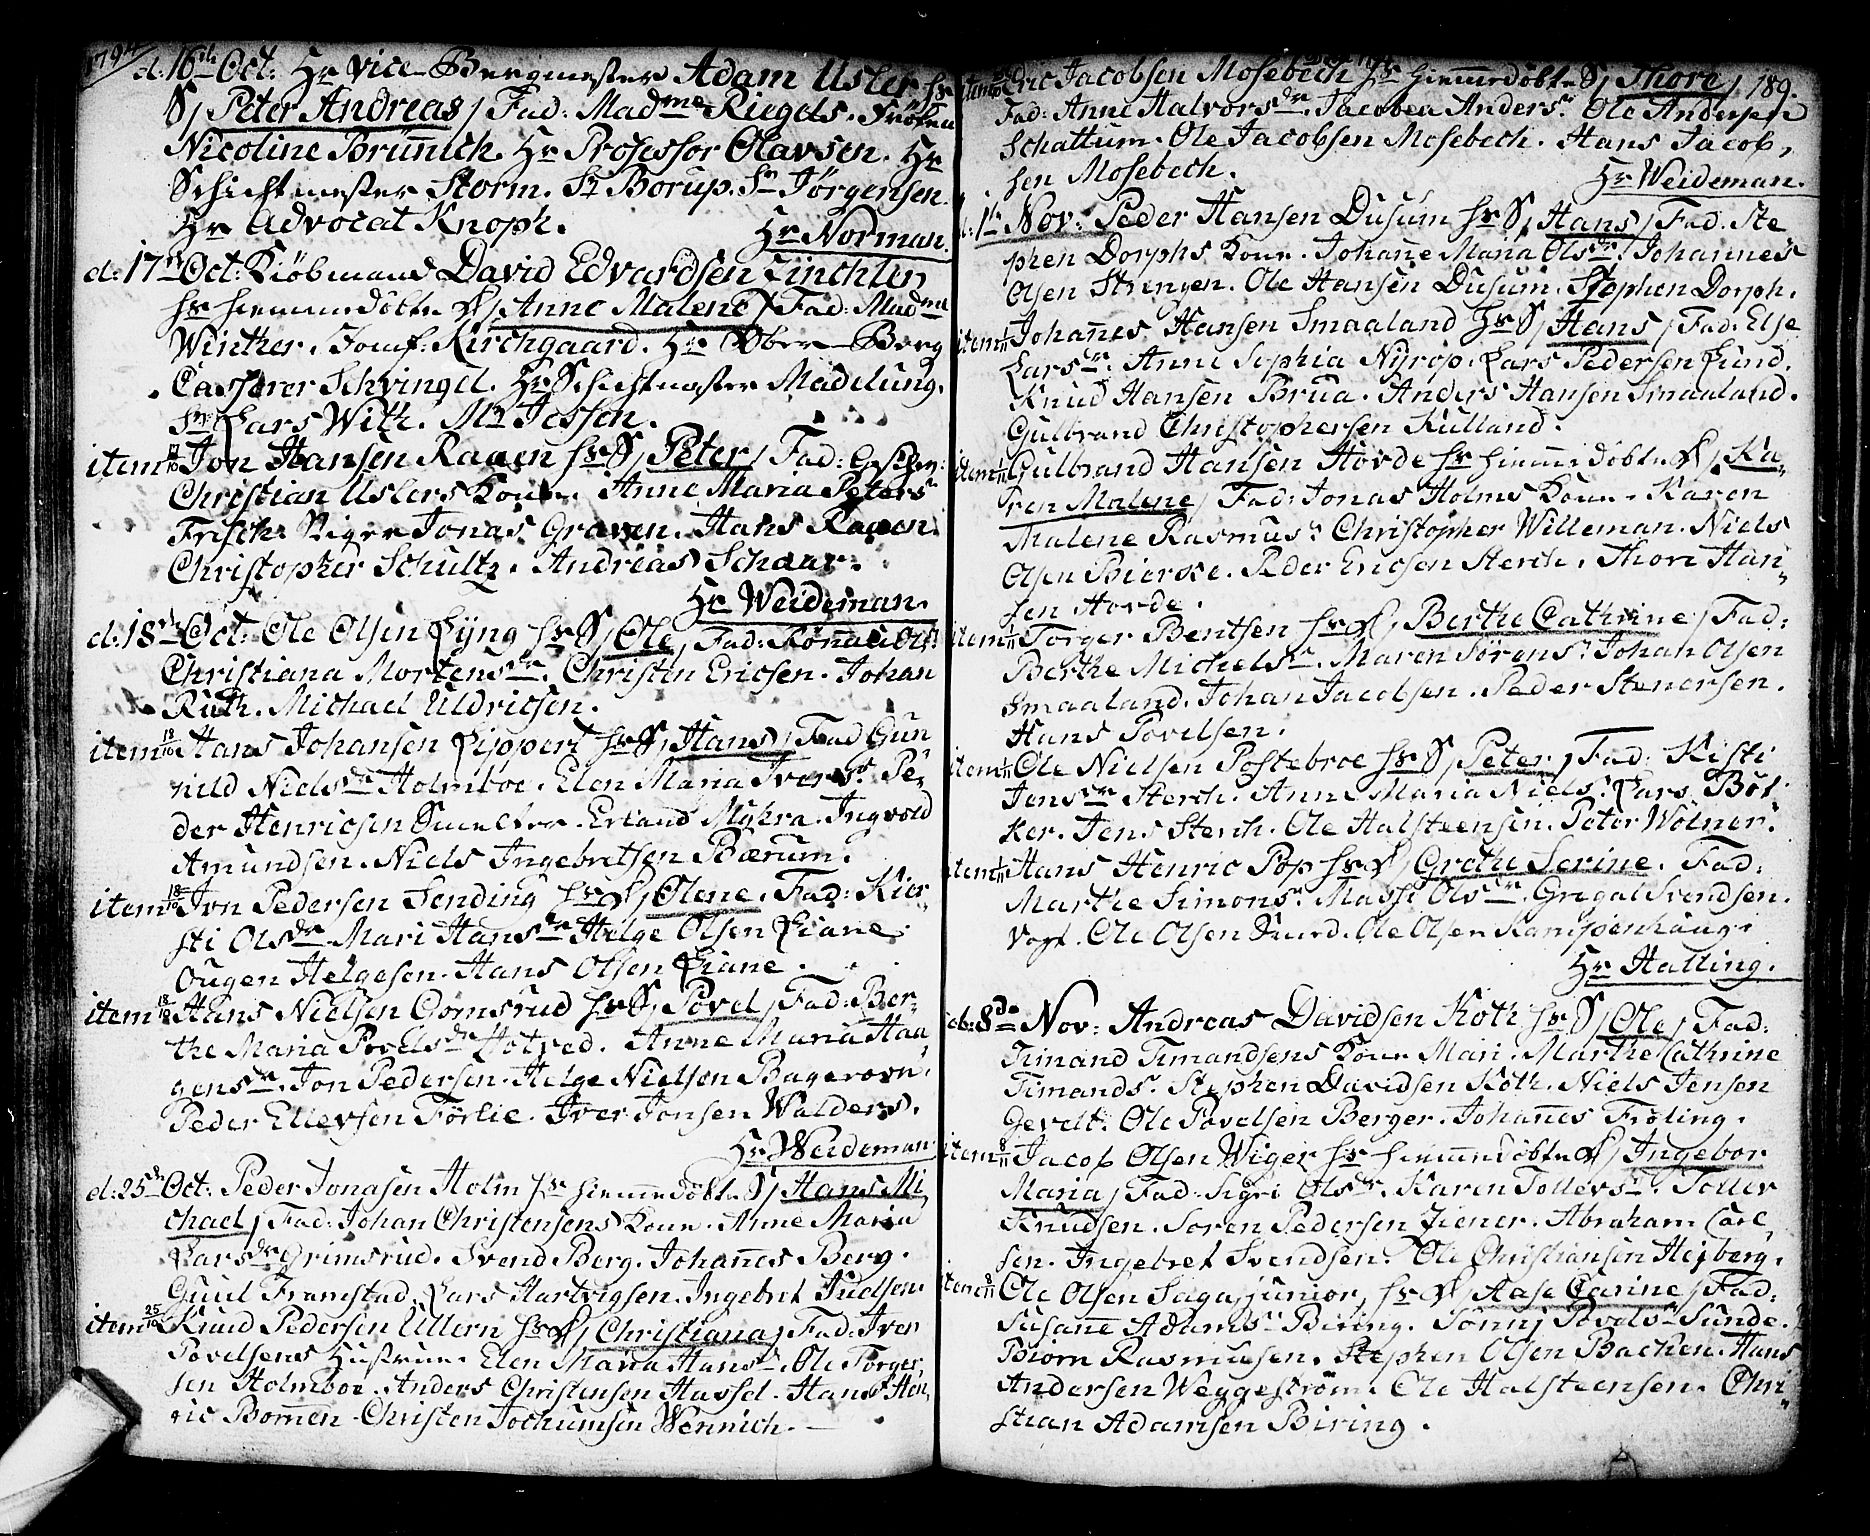 1794
d: 16de Oct: Hr Vice-Bergmester Adam Usler hs
S/ Peter Andreas / Fad: Madme Riegels. Frøken
Nicoline Brünnich. Hr Professor Olavsen. Hr
Schichtmester Storm. Sr Borup. Sr Jørgensen.
Hr Advocat Knoph.
Hr Norman.
d: 17de Oct: Kiøbmand David Edvardsen
hs hiemmedøbte D/ Anne Malene / Fad: Madme
Winther. Jomf: Kirchgaard. Hr Ober-Berg
Casserer Schvingel. Hr Schichtmester Madelung.
Sr Lars With. Mr Jessen.
item 17/10 Jon Hansen Raaen hs S/ Peter / Fad: Geschw:
Christian Uslers Kone. Anne Maria Peters
Frisch. Stiger Jonas Graven. Hans Raaen.
Christopher Schultz. Andreas Schaar.
Hr Weideman.
d: 18de Oct: Ole Olsen Lÿng hs S/ Ole / Fad: Rønau Olsd:
Christiana Mortensdr. Christen Ericsen. Johan
Ruth. Michael Uldricsen.
item 18/10 Hans Johansen Lippert hs S/ Hans / Fad Gun
nild Nielsdr Holmboe. Elen Maria Iversd. Pe-
der Henricsen Smelter. Erland Myhra. Ingvold
Amundsen. Niels Ingebretsen Bærum.
item 18/10 Jon Pedersen Sending hs D/ Olene. Fad: Kier-
sti Olsdr. Mari Hansdr. Helge Olsen Liane.
Ougen Helgesen. Hans Olsen Liane.
item 18/10 Hans Nielsen Gomsrud hs S/ Povel / Fad: Ber-
the Maria Povelsdr Hotved. Anne Maria Haa,
gensdr. Jon Pedersen. Helge Nielsen Bageroon.
Peder Ellevsen Førlie. Iver Jonsen Walders.
Hr Weideman
d: 25de Oct: Peder Jonasen Holm hs hiemmedøbte S/ Hans Mi
chael / Fad: Johan Christensens Kone. Anne Maria
Larsdr Grimsrud. Svend Berg. Johannes Berg.
Guul Framstad. Lars Hartvigsen. Ingebret Judsen.
item 25/10 Knud Pedersen Ullern hs D/ Christiana / Fad: Iver
Povelsens Hustrue. Elen Maria Hansd. Ole Torger,
sen Holmboe. Anders Christensen Hassel. Hans Hen,
ric Bomen. Christen Jochumsen Wennich.
item Eric Jacobsen Mosebech hs hiemmedøbte S/ Thore / 189.
Fad: Anne Halvorsdr. Jacobea Andersd. Ole Andersen
Schattum. Ole Jacobsen Mosebech. Hans Jacob,
sen Mosebech.
Hr Weideman.
d: 1de Nov: Peder Hansen Dusum hs S/ Hans / Fad: Ste
phen Dorphs Kone. Johanne Maria Olsdr. Johannes
Olsen Strengen. Ole Hansen Dusum. Stephen Dorph.
item 1/11 Johannes Hansen Smaaland hs S/ Hans / Fad: Else
Larsdr. Anne Sophia Nyrop. Lars Pedersen Lund.
Knud Hansen Brua. Anders Hansen Smaaland.
Gulbrand Christophersen Kulland.
item 1/11 Gulbrand Hansen Hovde hs hiemmedøbte D/ Ka-
ren Malene / Fad: Jonas Holms Kone. Karen
Malene Rasmusd. Christopher Willeman. Niels
Olsen Bierke. Peder Ericsen Sterch. Thore Han,
sen Hovde.
item 1/11 Torger Bentsen hs D/ Berthe Cathrine / Fad:
Berthe Michelsd. Maren Sørensd. Johan Olsen
Smaaland. Johan Jacobsen. Peder Stenersen.
Hans Povelsen.
item 1/11 Ole Nielsen Postebroe hs S/ Peter / Fad: Kisti
Jensdr Sterch. Anne Maria Nielsd. Lars Böt
ker. Jens Sterch. Ole Halsteensen. Peter Wølner.
item 1/11 Hans Henric Pop hs D/ Grethe Serine. Fad:
Marthe Simonsd. Massi Olsdr. Gregal Svendsen.
Vogt. Ole Olsen Ruud. Ole Olsen Kampenhaug.
Hr Halling.
d: 8de Nov: Andreas Davidsen Koth hs S/ Ole / Fad:
Timand Timandsens Kone Mari. Marthe Cathrine
Timandsd. Stephen Davidsen Koth. Niels Jensen
Gevelt. Ole Povelsen Berger. Johannes Frøling.
item 8/11 Jacob Olsen Wiger hs hiemmedøbte D/ Ingebor
Maria / Fad: Sigri Olsdr. Karen Tollevsd. Tollev
Knudsen. Soren Pedersen Ziener. Abraham Carl,
sen. Ingebret Svendsen. Ole Christiansen Hejberg.
item 8/11 Ole Olsen Saga junior, hs D/ Aase Carine / Fad:
Susanne Adamsd Biring. Sønnj Povelsd Sunde.
Biorn Rasmussen. Stephen Olsen Bachen. Hans
Andersen Weggestrøm. Ole Halsteensen. Chri,
stian Adamsen Biring.